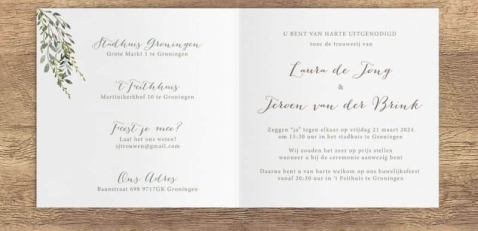 Stadhuis Groningen
Grote Markt 1 te Groningen
't Feithhuis
Martinikerkhof 10 te Groningen
Feest je mee?
Laat het ons weten!
sjtrouwen@gmail.com
Ons Adres
Raanstraat 69B 9717GK Groningen
U BENT VAN HARTE UITGENODIGD
voor de trouwerij van
Laura de Jong
&
Jeroen van der Brink
Zeggen "ja" tegen elkaar op vrijdag 21 maart 2024
om 15:30 uur in het stadhuis te Groningen
Wij zouden het zeer op prijs stellen
wanneer u bij de ceremonie aanwezig bent
Daarna bent u van harte welkom op ons huwelijksfeest
vanaf 20:30 uur in 't Feithuis te Groningen